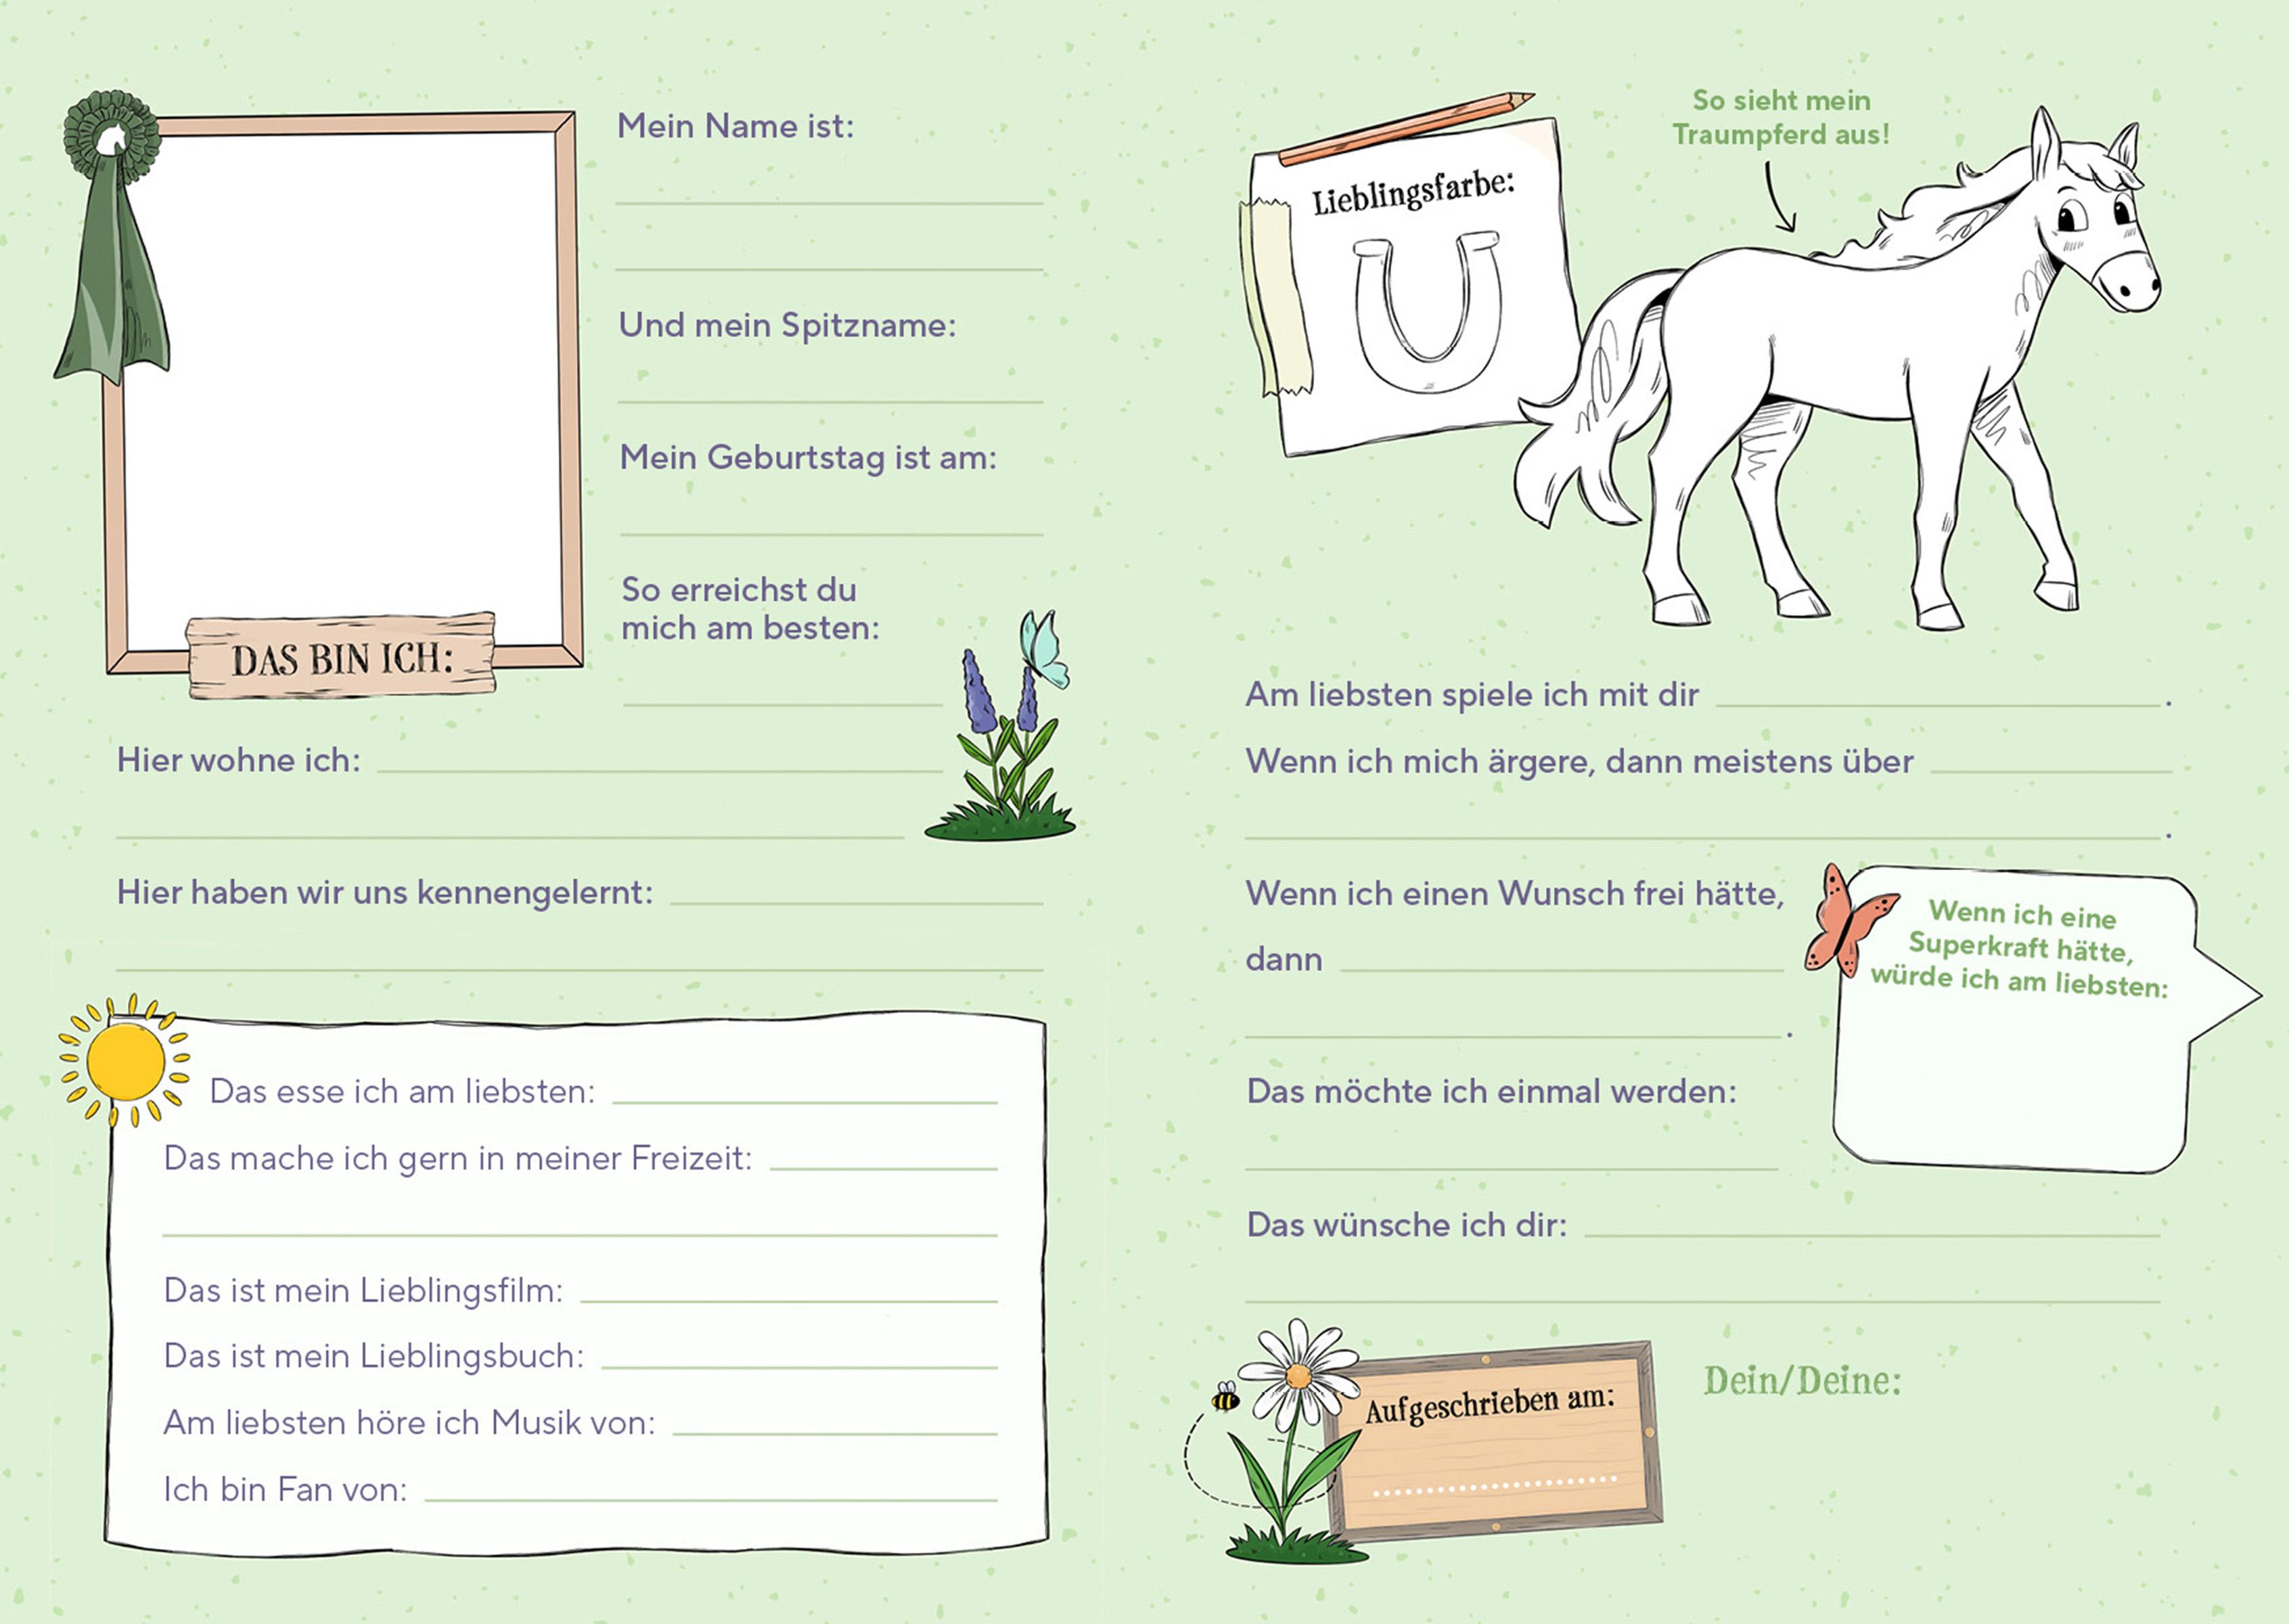 DAS BIN ICH:
Mein Name ist:
Und mein Spitzname:
Mein Geburtstag ist am:
So erreichst du
mich am besten:
Hier wohne ich:
Hier haben wir uns kennengelernt:
Das esse ich am liebsten:
Das mache ich gern in meiner Freizeit:
Das ist mein Lieblingsfilm:
Das ist mein Lieblingsbuch:
Am liebsten höre ich Musik von:
Ich bin Fan von:
Lieblingsfarbe:
So sieht mein
Traumpferd aus!
Am liebsten spiele ich mit dir .
Wenn ich mich ärgere, dann meistens über
.
Wenn ich einen Wunsch frei hätte,
dann
.
Wenn ich eine
Superkraft hätte,
würde ich am liebsten:
Das möchte ich einmal werden:
Das wünsche ich dir:
Aufgeschrieben am:
Dein/Deine: